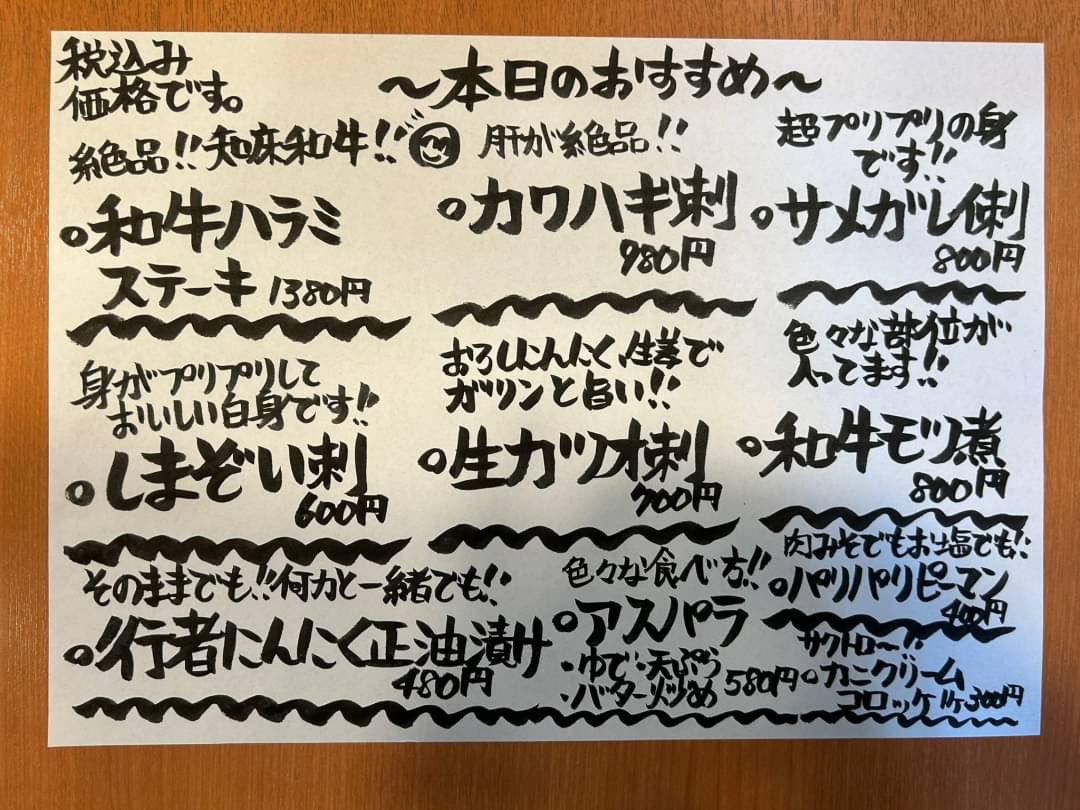 税込み
価格です。
～本日のおすすめ～
絶品!!知床和牛!!
和牛ハラミ
ステーキ 1380円
肝が絶品!!
カワハギ刺
980円
超プリプリの身
です!!
サメガレイ刺
800円
身がプリプリして
おいしい白身です!!
しまぞい刺
600円
おろしにんにく、生姜で
ガツンと旨い!!
生カツオ刺
700円
色々な部位が
入ってます!!
和牛モツ煮
800円
そのままでも!!何かと一緒でも!!
行者にんにく正油漬け
480円
色々な食べ方!!
アスパラ
・ゆで・天ぷら
・バター炒め 580円
肉みそでもお塩でも!!
パリパリピーマン
400円
サクトロ～!!
カニクリーム
コロッケ 1ヶ300円